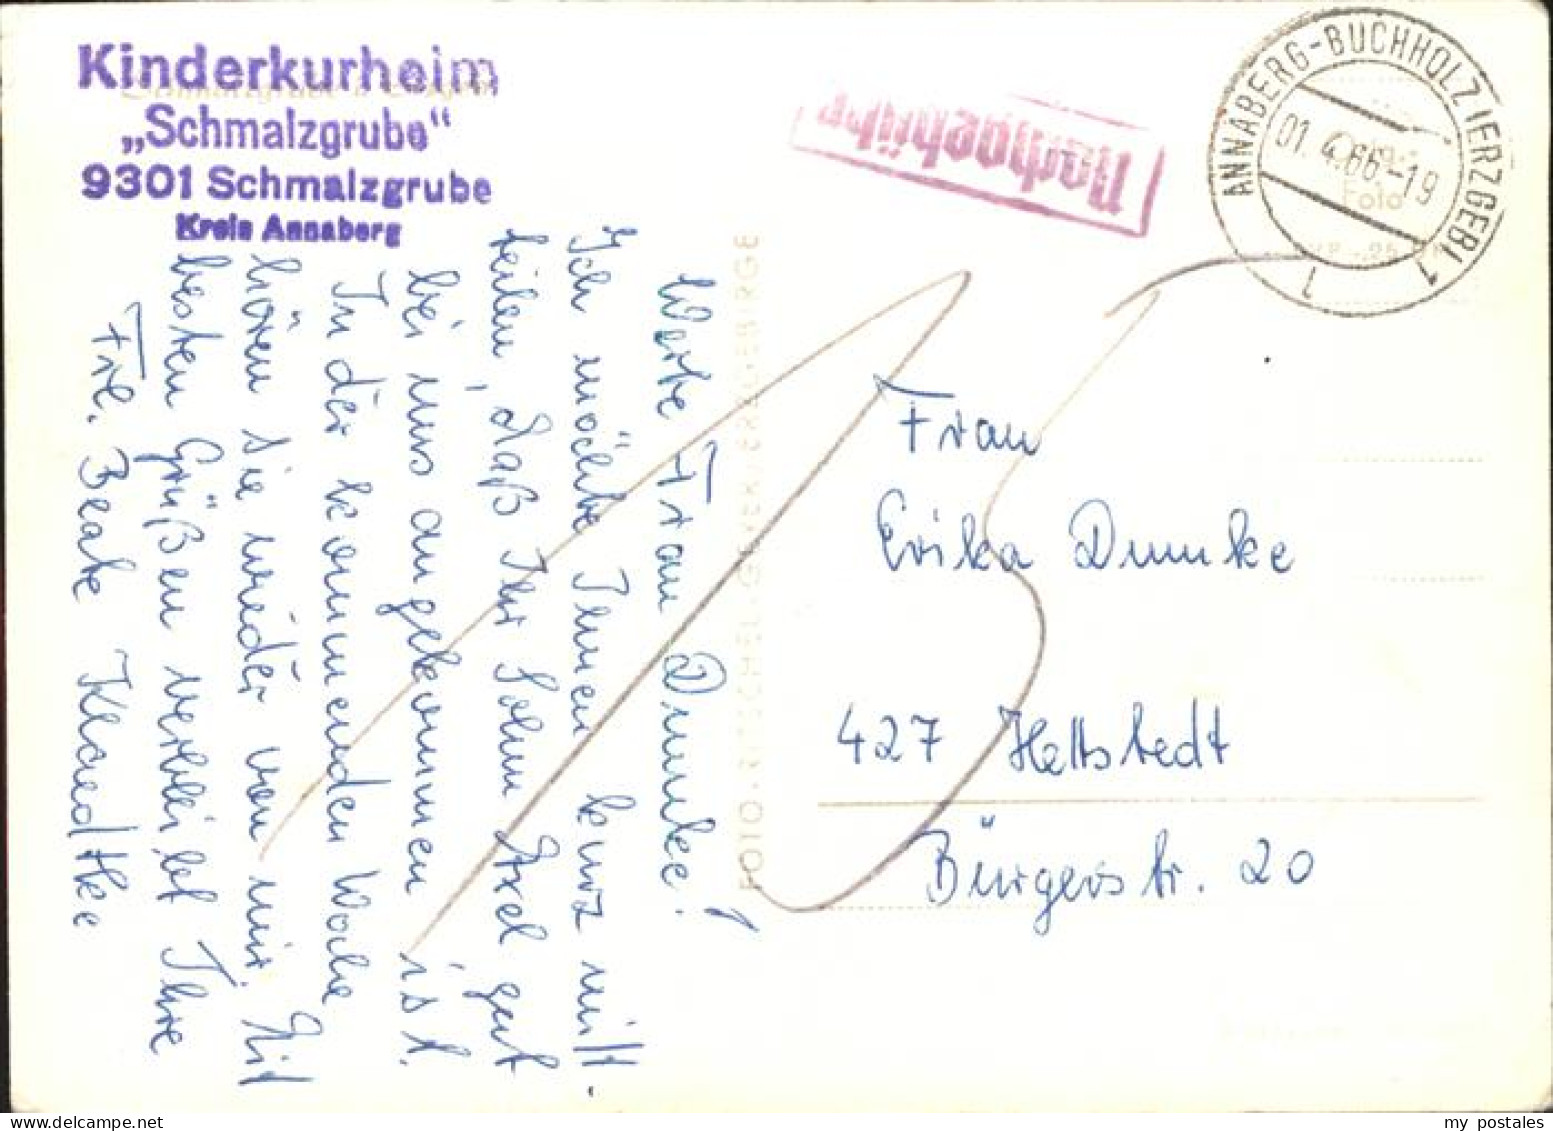 Kinderkurheim
„Schmalzgrube“
9301 Schmalzgrube
Kreis Annaberg
Nachgebühr
ANNABERG-BUCHHOLZ (ERZGEB) 1
01.4.66-19
l
Foto
Werte Frau Dumke!
Ich möchte Ihnen kurz mit-
teilen, daß Ihr Sohn Axel gut
bei uns angekommen ist.
In der kommenden Woche
hören Sie wieder von mir. Mit
besten Grüßen verbleibt Ihre
Frl. Beate Klaedtke
Frau
Erika Dumke
427 Hettstedt
Bürgerstr. 20
my postales